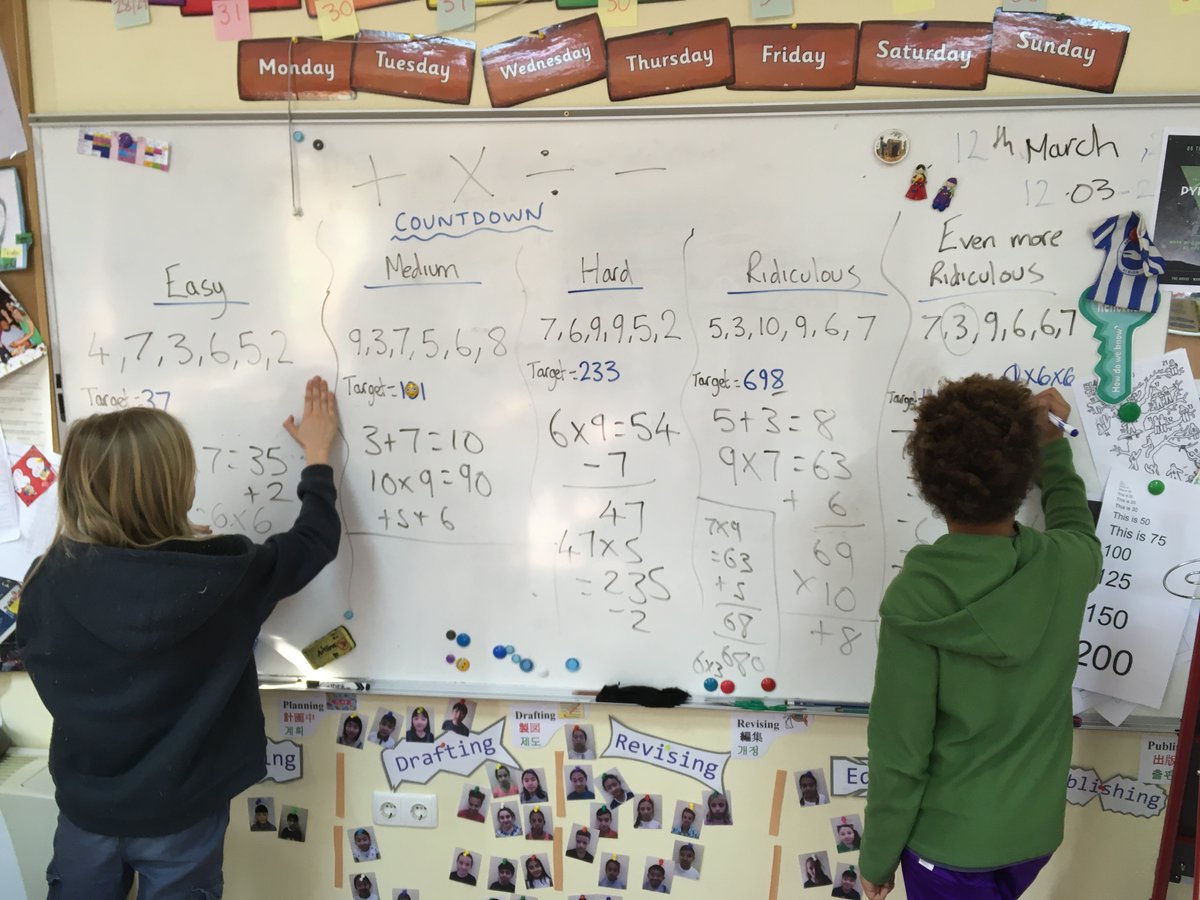 31
30
31
30
Monday
Tuesday
Wednesday
Thursday
Friday
Saturday
Sunday
12th March
12 .03-2
+ × ÷ −
COUNTDOWN
Easy
4,7,3,6,5,2
Target=37
7=35
+2
6×6
Medium
9,3,7,5,6,8
Target=101
3+7=10
10×9=90
+5+6
Hard
7,6,9,9,5,2
Target=233
6×9=54
-7
47
47×5
=235
-2
Ridiculous
5,3,10,9,6,7
Target=698
5+3=8
9×7=63
+ 6
69
×10
+8
7×9
=63
+5
68
6×3 680
Even more
Ridiculous
7,3,9,6,6,7
×6×6
Target
How do we know?
This is 50
This is 75
100
125
150
200
Planning
計画中
계획
Drafting
製図
제도
Revising
編集
개정
Publi
出版
출판
ing
Drafting
Revising
Ed
blishing